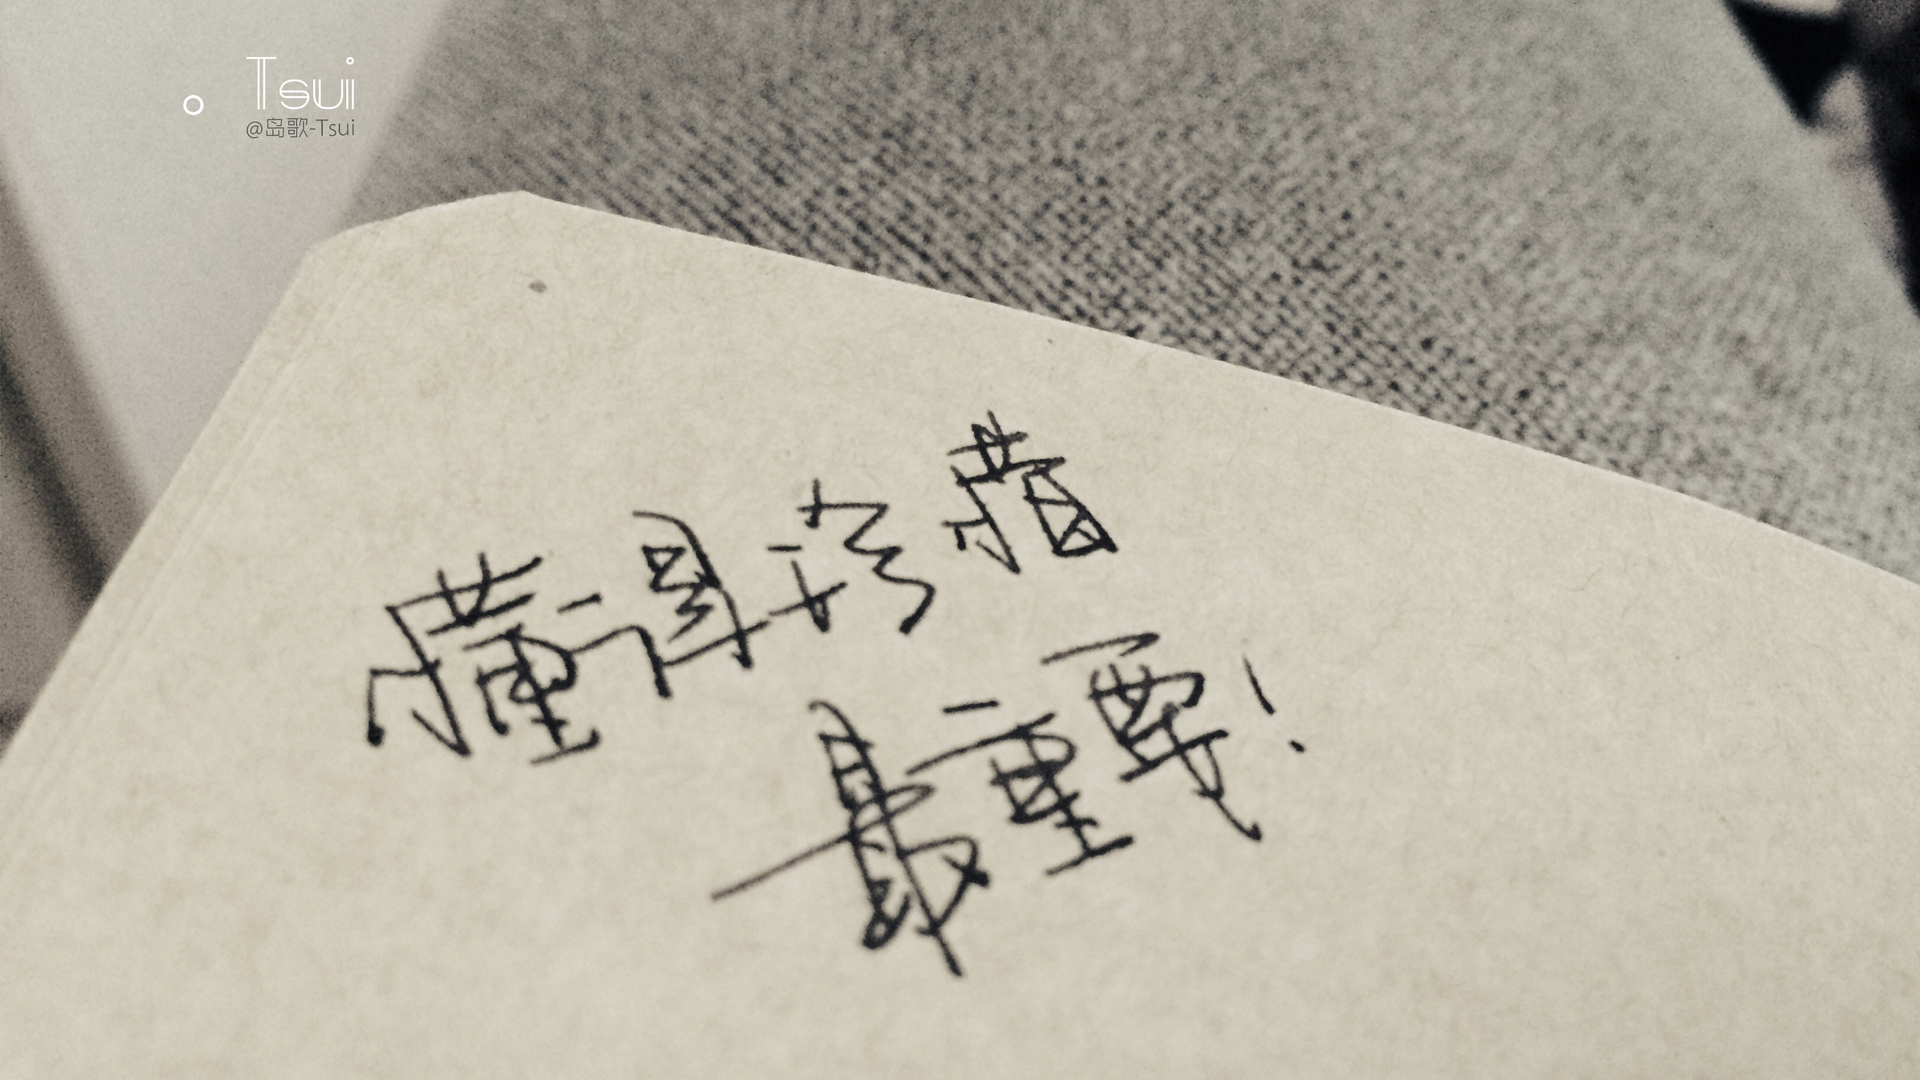 Tsui
@岛歌-Tsui
懂得珍惜
最重要！